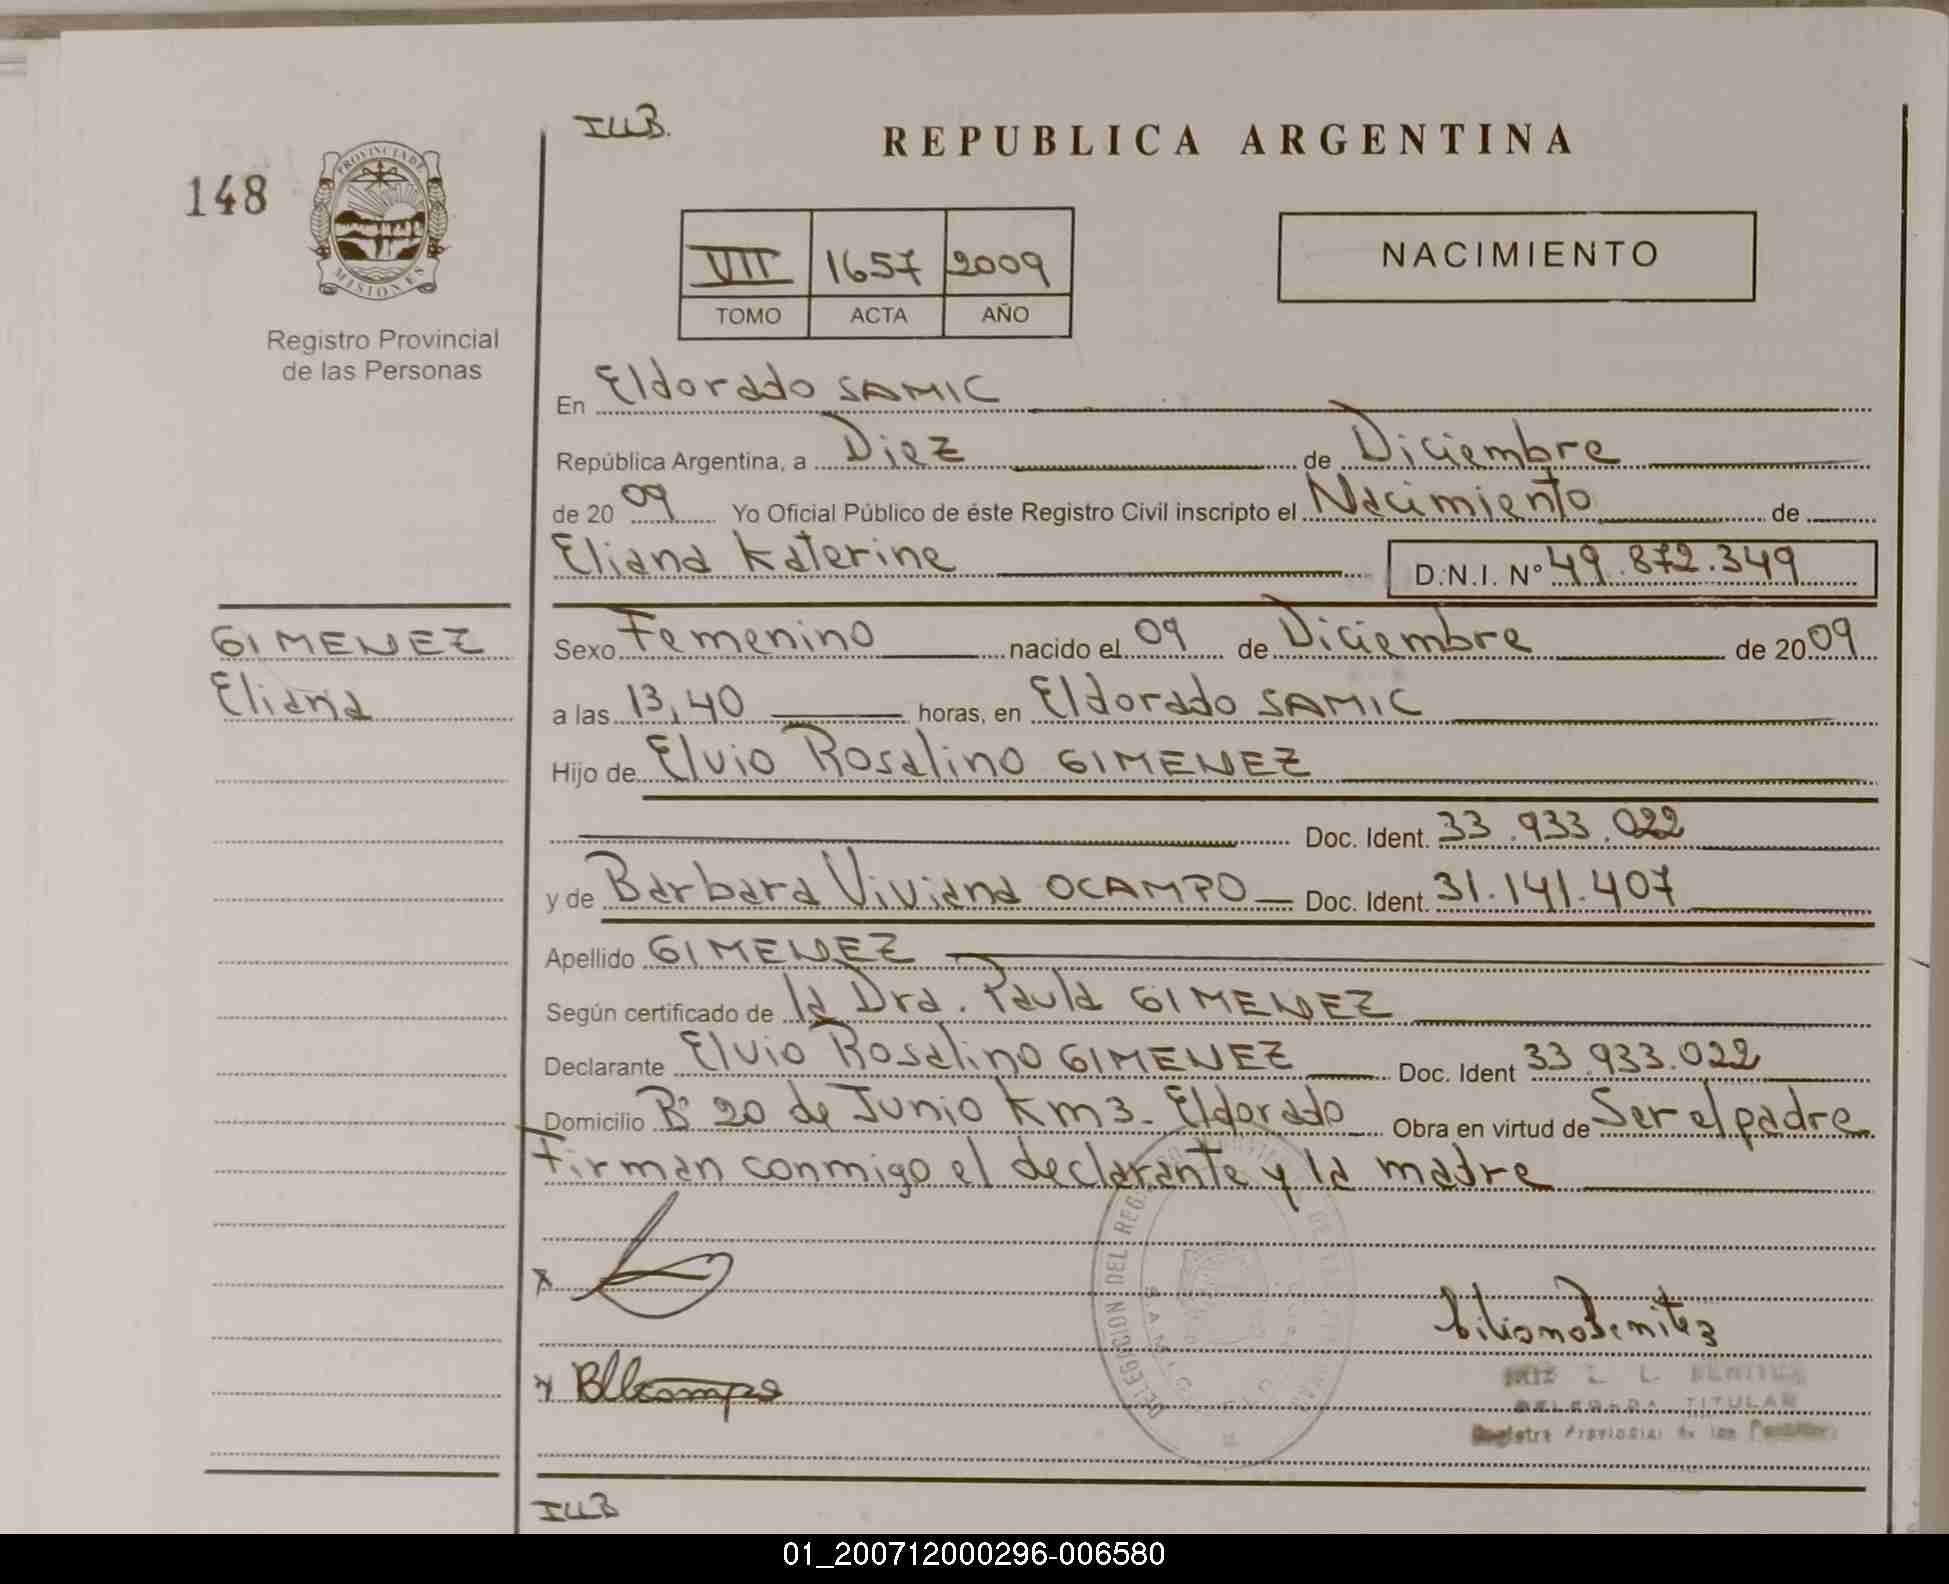 ILLB.
REPUBLICA ARGENTINA
148
PROVINCIA DE
MISIONES
VIII 1657 2009
TOMO ACTA AÑO
NACIMIENTO
Registro Provincial
de las Personas
En Eldorado SAMIC
República Argentina, a Diez de Diciembre
de 20 09 Yo Oficial Público de éste Registro Civil inscripto el Nacimiento de
Eliana Katerine D.N.I. N° 49.872.349
GIMENEZ
Eliana
Sexo Femenino nacido el 09 de Diciembre de 20 09
a las 13,40 horas, en Eldorado SAMIC
Hijo de Elvio Rosalino GIMENEZ
Doc. Ident. 33.933.022
y de Barbara Viviana OCAMPO Doc. Ident. 31.141.407
Apellido GIMENEZ
Según certificado de la Dra. Paula GIMENEZ
Declarante Elvio Rosalino GIMENEZ Doc. Ident 33.933.022
Domicilio B° 20 de Junio Km 3- Eldorado Obra en virtud de Ser el padre
Firman conmigo el declarante y la madre
DELEGACION DEL REG.
TITULAR
Registro Provincial de las
ILLB
01_200712000296-006580